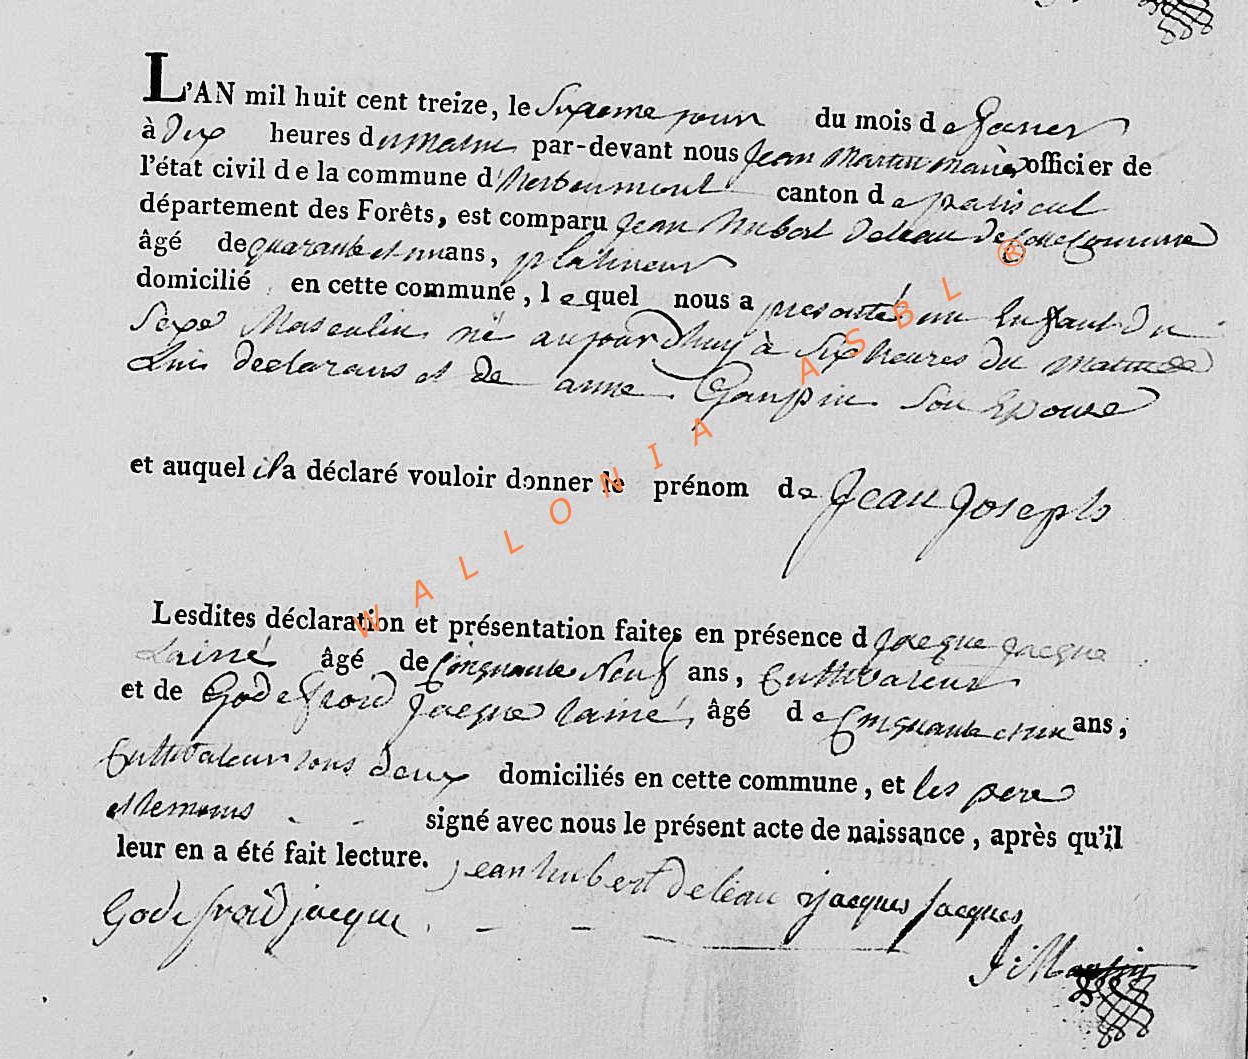 L'AN mil huit cent treize, le Sixieme jour du mois de Janvier
à Dix heures du matin par-devant nous Jean Martin maire officier de
l'état civil de la commune d'herbeumont canton de paliseul
département des Forêts, est comparu Jean hubert Deleau de cette Commune
âgé de quarante et un ans, platineur
domicilié en cette commune, lequel nous a presenté un Enfant du
Sexe Masculin né aujourd'huy à Six heures du matin de
Lui declarans et de anne Gaupin Son Epouse
et auquel il a déclaré vouloir donner le prénom de Jean Joseph
Lesdites déclaration et présentation faites en présence d Jacque Jacque
Lainé âgé de Cinquante Neuf ans, Cultivateur
et de Godefroid Jacque lainé, âgé de Cinquante et un ans,
Cultivateur tous deux domiciliés en cette commune, et les pere
et temoins signé avec nous le présent acte de naissance, après qu'il
leur en a été fait lecture. jean hubert Deleau jacques jacques
Godefroid jacque
J: Martin
WALLONIA ASBL ®